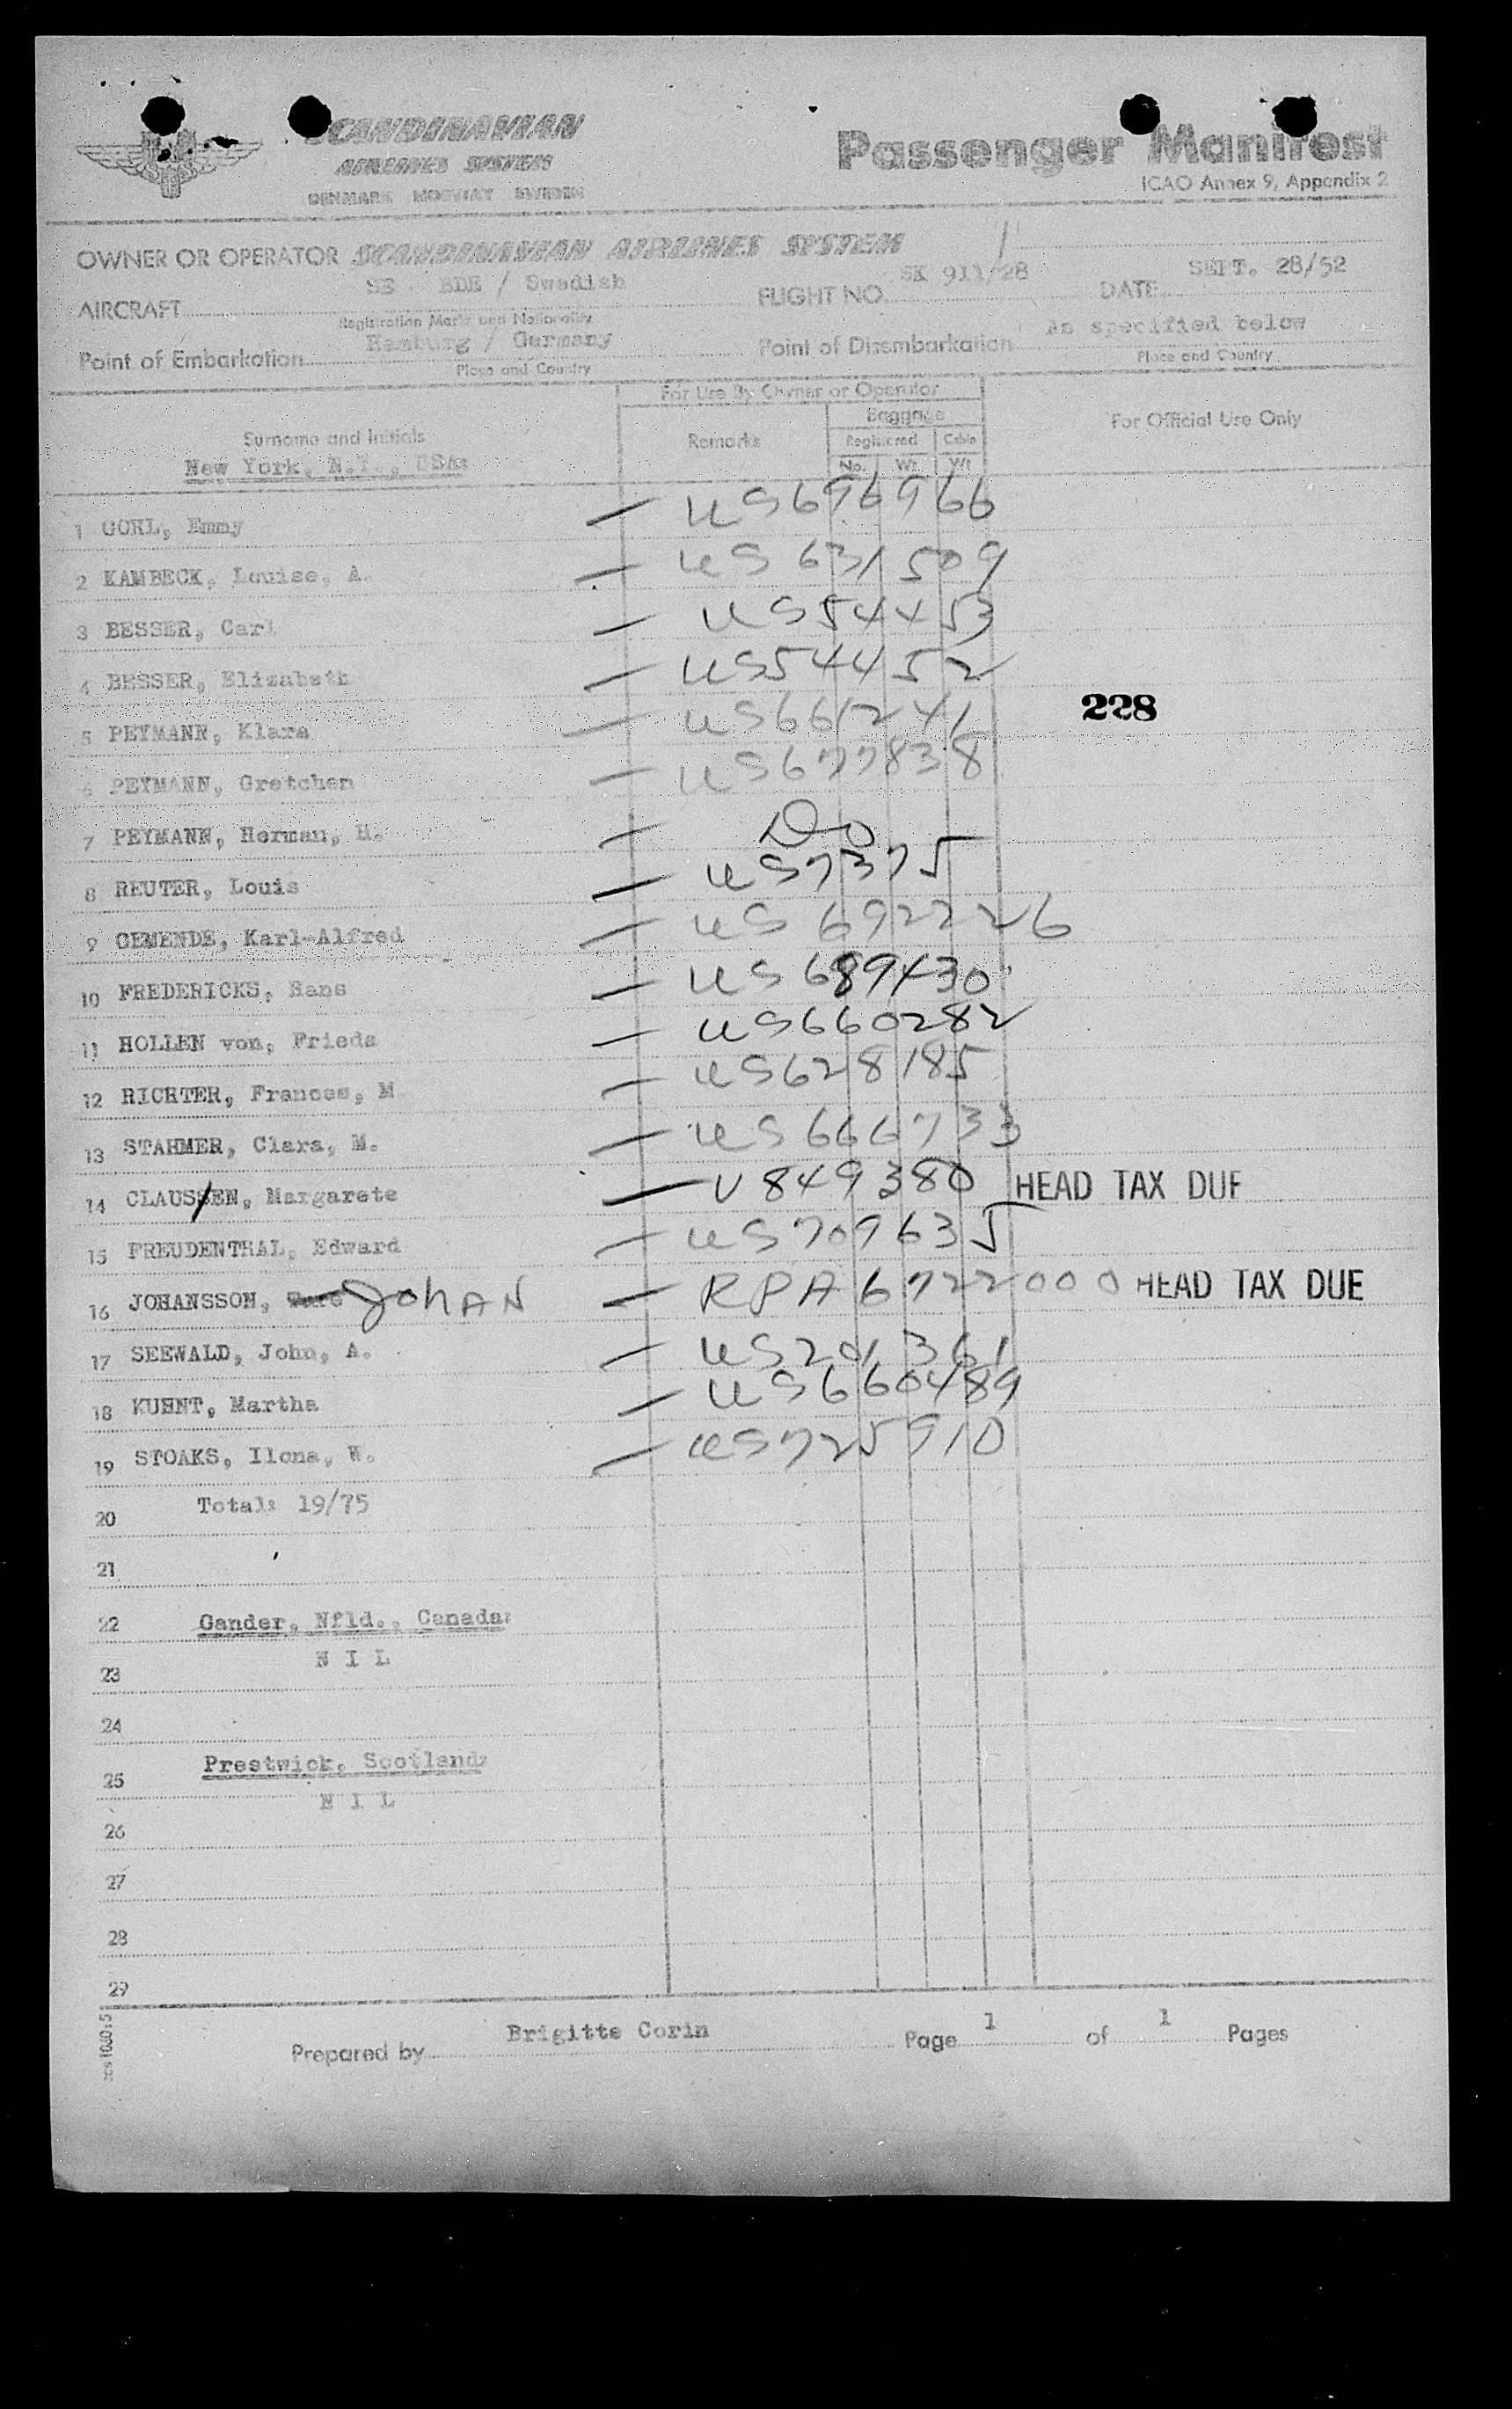 SCANDINAVIAN
AIRLINES SYSTEM
DENMARK NORWAY SWEDEN
Passenger Manifest
ICAO Annex 9, Appendix 2
OWNER OR OPERATOR SCANDINAVIAN AIRLINES SYSTEM
AIRCRAFT SE - BDE / Swedish FLIGHT NO. SK 911/28 DATE SEPT. 28/52
Registration Marks and Nationality
Point of Embarkation Hamburg / Germany Point of Disembarkation As specified below
Place and Country Place and Country
For Use By Owner or Operator
Surname and Initials Remarks Baggage For Official Use Only
Registered Cabin
No. Wt. Wt
New York, N.Y., USA:
1 GOHL, Emmy — US696966
2 KAMBECK, Louise, A. — US 631509
3 BESSER, Carl — US54453
4 BESSER, Elizabeth — US54452
228
5 PEYMANN, Klara — US661241
6 PEYMANN, Gretchen — US677838
7 PEYMANN, Herman, H. — Do
8 REUTER, Louis — US7375
9 GEMENDE, Karl-Alfred — US 692226
10 FREDERICKS, Hans — US 689430
11 HOLLEN von, Frieda — US660282
12 RICHTER, Frances, M — US628185
13 STAHMER, Clara, M. — US 666733
14 CLAUSSEN, Margarete — V 849380 HEAD TAX DUE
15 FREUDENTHAL, Edward — US709635
16 JOHANSSON, JOHAN — RPA6722000 HEAD TAX DUE
17 SEEWALD, John, A. — US201361
18 KUHNT, Martha — US660489
19 STOAKS, Ilona, W. — US725910
20 Total: 19/75
21
22 Gander, Nfld., Canada:
23 N I L
24
25 Prestwick, Scotland:
N I L
26
27
28
29
Prepared by Brigitte Corin Page 1 of 1 Pages